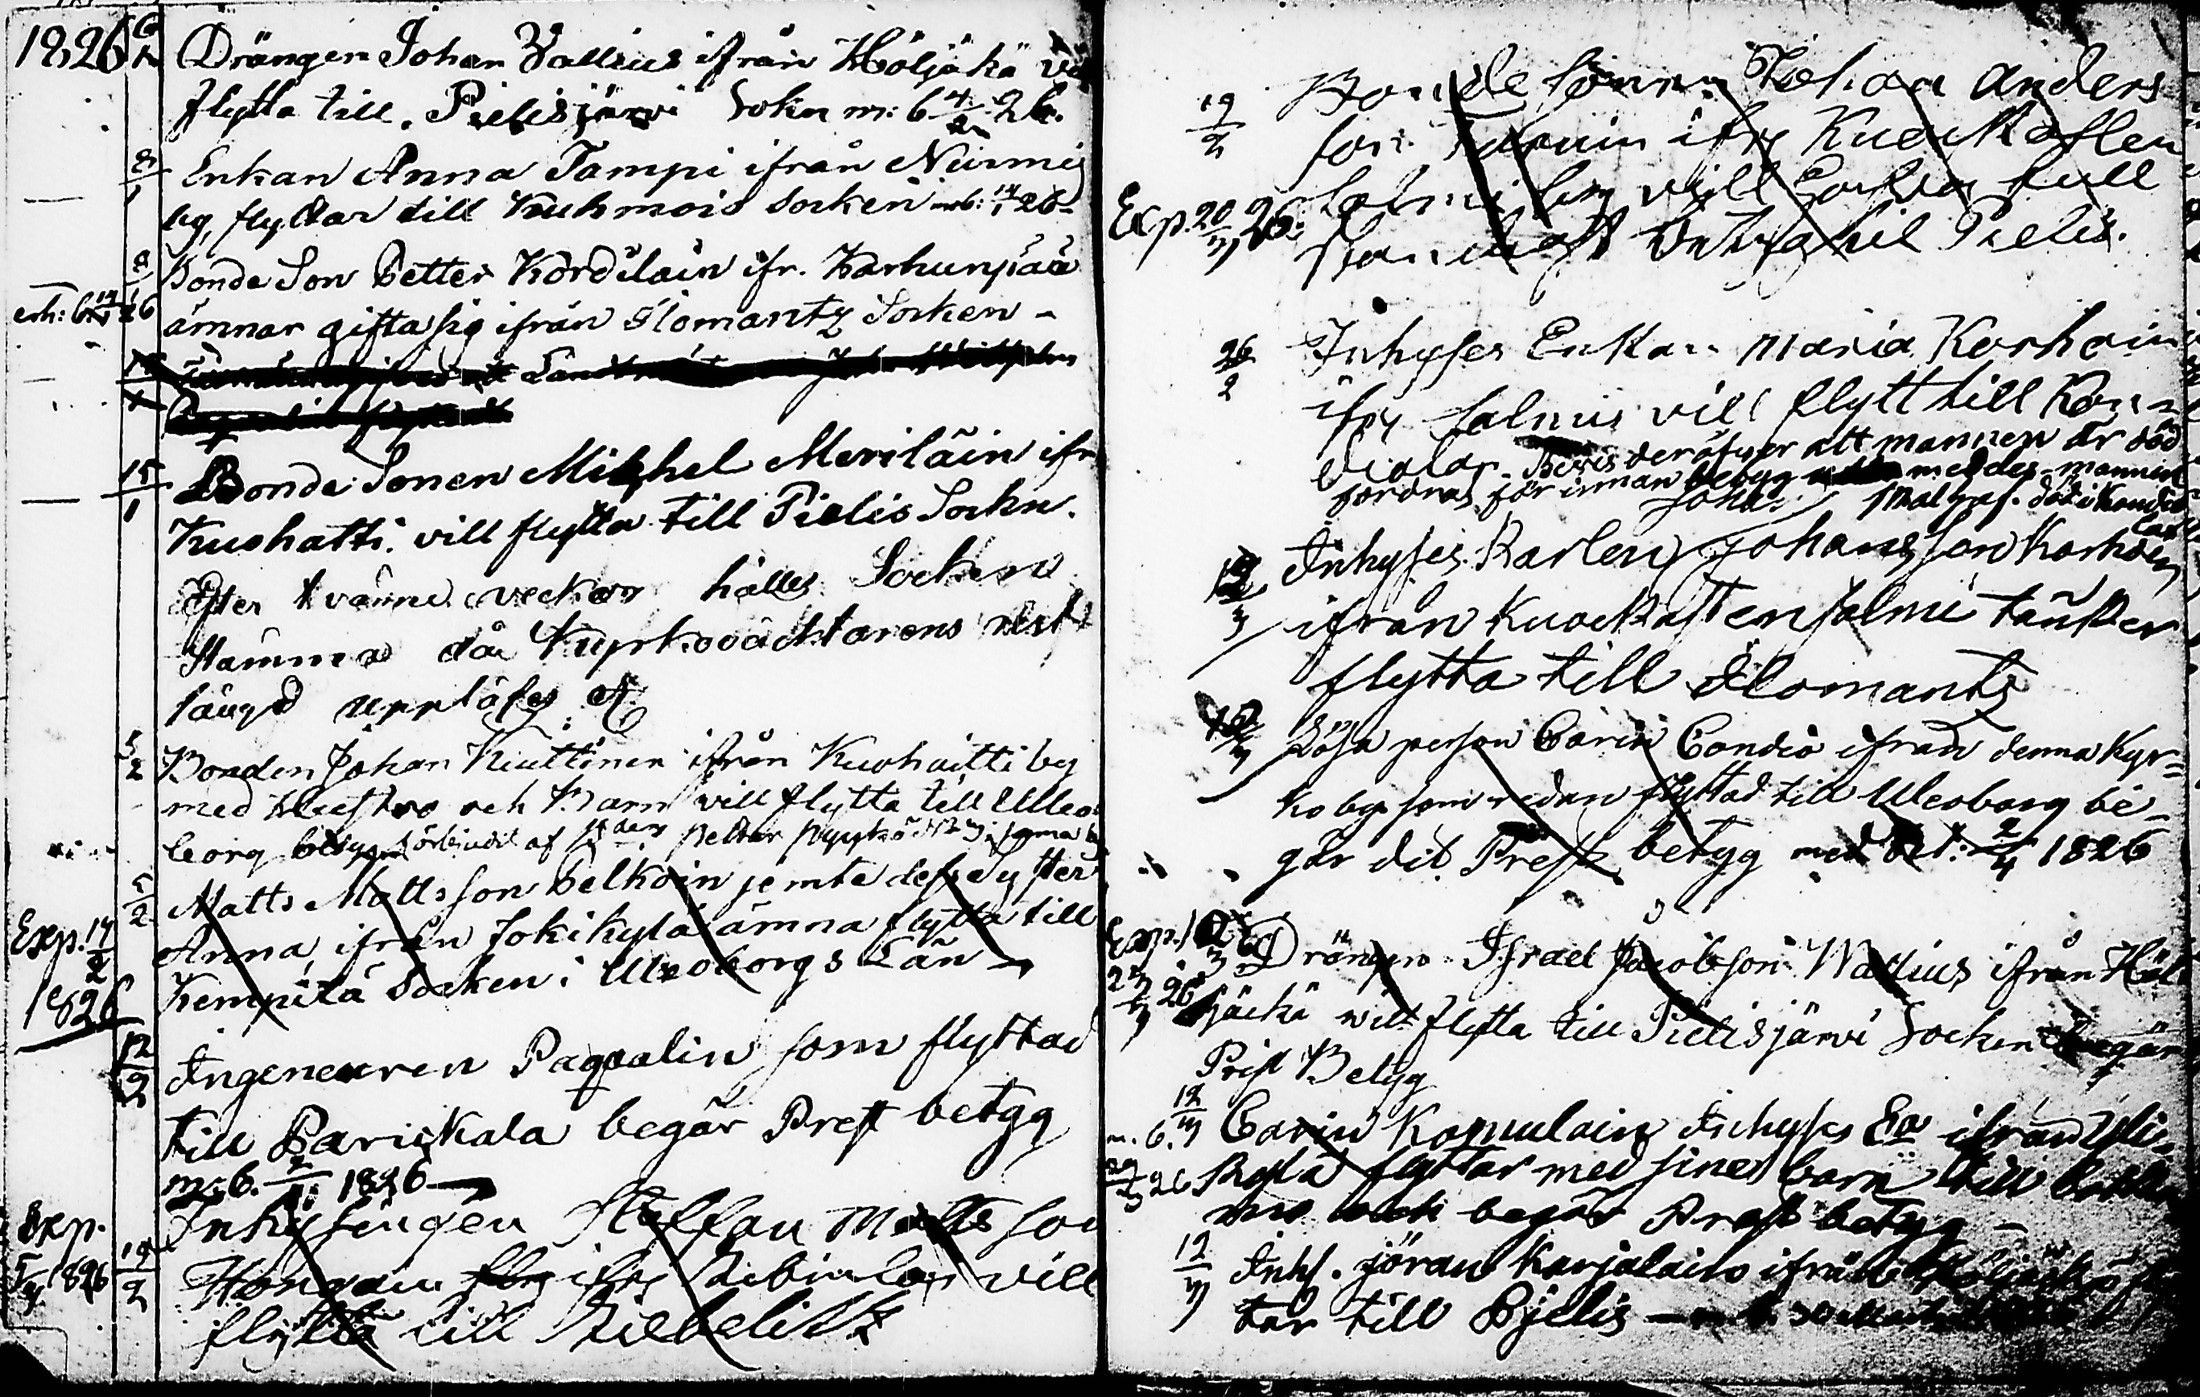 1826 Drängen Johan Vallius ifrån Höljäkä
flytta till Pielisjärvi Sokn m: b 4/2 26.
8/1 Enkan Anna Tampi ifrån Nurmis
by, flyttar till Kuhmois Socken mb: 14/1 26
8/1 Bonde Son Petter Kordilain ifr. Karhunpää
14/1 26 ämnar gifta sig ifrån Ilomantz Socken -
15/1 Bonde Sonen Michel Meriläin ifr
Kuohatti. vill flytta till Pielis Sockn.
Efter tvänne veckor hålles Socken
Stämma då Kyrkovächtarens rest
längd uppläses
5/2 Bonden Johan Kiuttinen ifrån Kuohatti by
med Hustro och Barn vill flytta till Uleå
borg betyg förbindit af Petter Pyykö
5/2 Matts Mattsson Pelkoin jemte dess Syster
Exp. 17/2 Anna, ifrån Jokikylä ämna flytta till
1826 Kempilä Socken i Uleoborgs Län
12/2 Ingeneuren Paqvalin som flyttad
till Parickala begär Prest betyg
m: b. 2/4 1826
Exp. Inhysingen Staffan Matts son
5/3 1826 19/2 Honkan ifr vill
flytta till Libelitz
19/2 Bonde sonen Johan Anders
son ifr Kuockasten
Exp. 20/3 26. Salmi by vill
betyg till Pielis.
26/2 Inhyses Enkan Maria Korhoin
ifr Salmis vill flytt till Kon-
diolax. Bevis deröfver att mannen är död
fordras för innan betyg meddes - mannen
Joh: Malgraf. död i Kondio
lax
12/3 Inhyses Karlen Johansson Korhoin
ifrån Kuockastensalmi tänker
flytta till Ilomants
12/3 Lösa person Carin Condia ifrån denna Kyr-
ko by som redan flyttad till Uleoborg be-
gär dit Prest betyg med bet: 2/4 1826
Exp. Drängen Israel Jacobson Wallius ifrån Höl
jäckä will flytta till Pielisjärvi Socken begär
Prest Betyg
12/3 Carin Komulain Inhyses Ea ifrån Yli-
kylä flyttar med sine barn till
mo och begär Prest betyg -
12/3 Inhs. Jöran Karjalain ifrån Höljäckä
tar till Pjelis